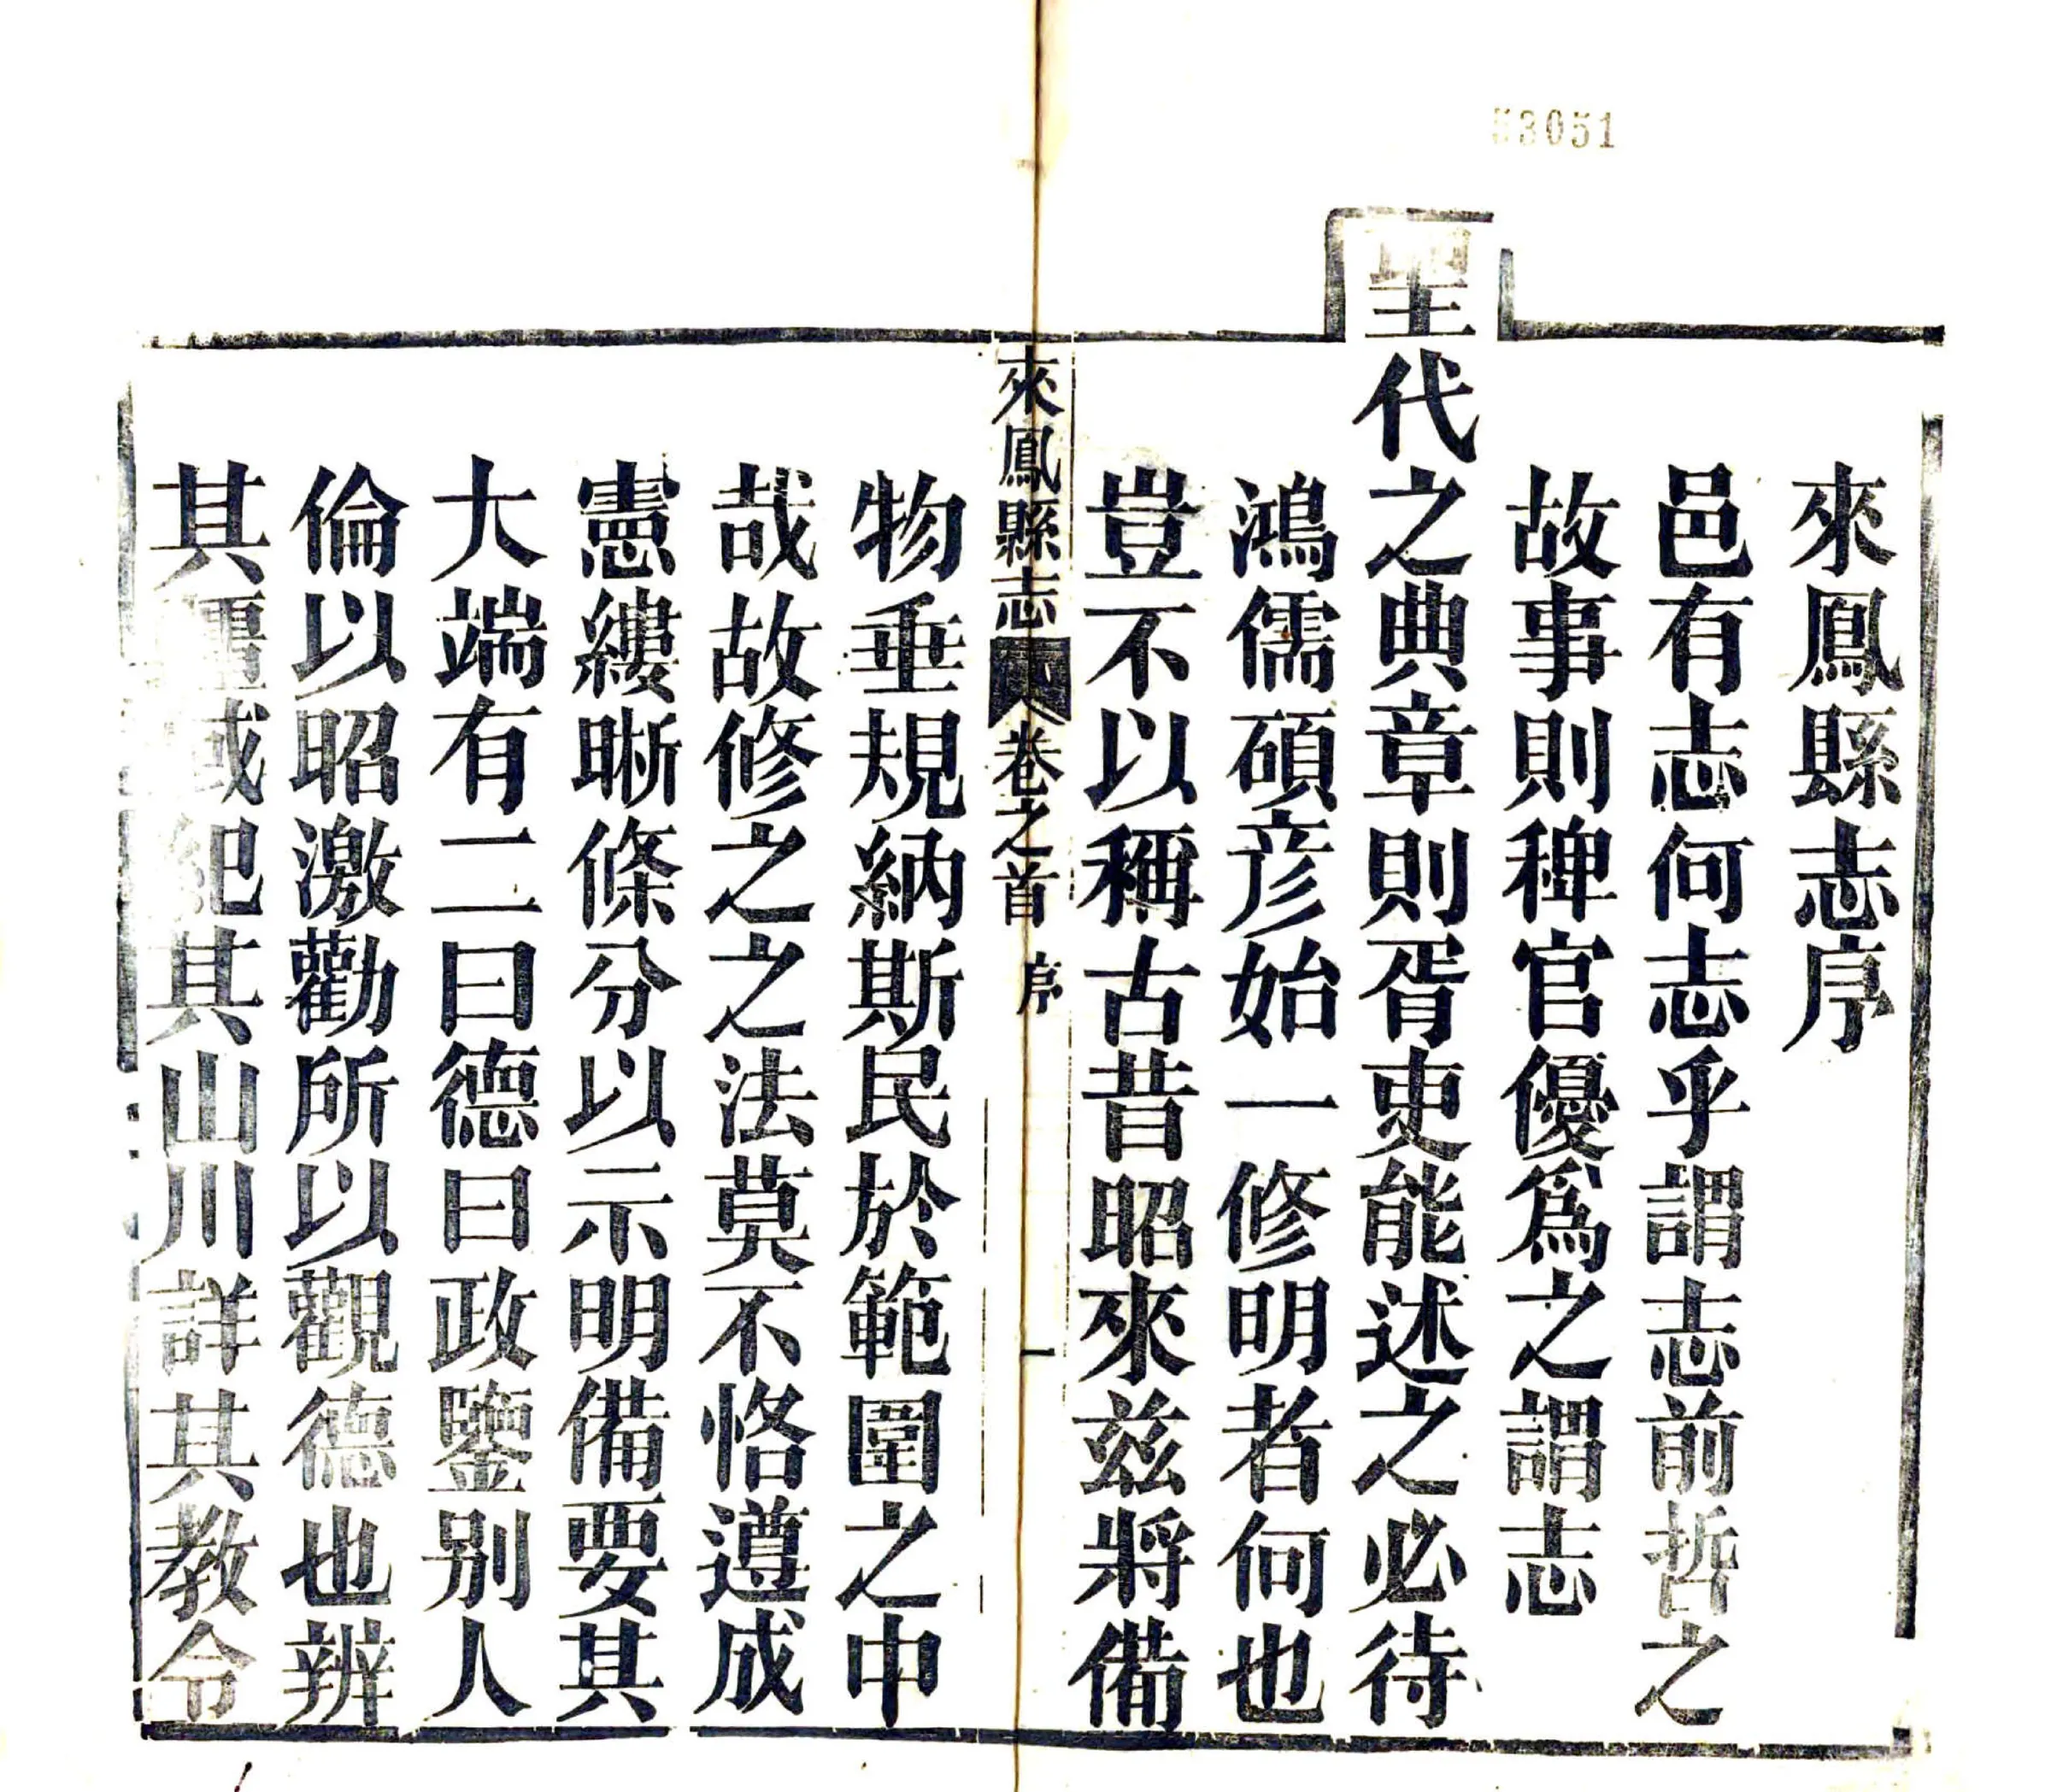 53051
來鳳縣志序
邑有志何志乎謂志前哲之
故事則稗官優爲之謂志
聖代之典章則胥吏能述之必待
鴻儒碩彦始一修明者何也
豈不以稱古昔昭來兹將備
來鳳縣志 卷之首 序 一
物垂規納斯民於範圍之中
哉故修之之法莫不恪遵成
憲縷晰條分以示明備要其
大端有二曰德曰政鑒别人
倫以昭激勸所以觀德也辨
其疆域紀其山川詳其教令